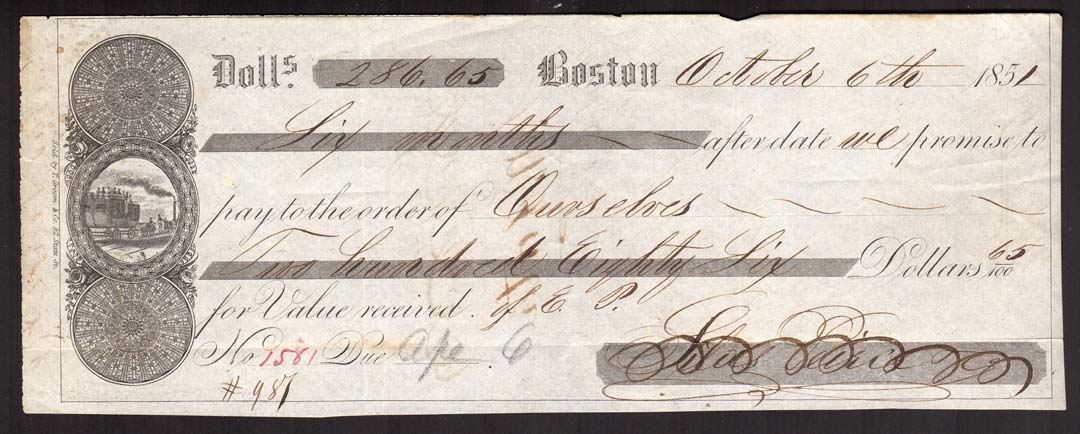 Dolls. 286.65 Boston October 6th 1851
Six months after date we promise to
pay to the order of Ourselves
Two hundred Eighty Six Dollars 65/100
for Value received. of E. P.
No 1581 Due Ap 6
# 987